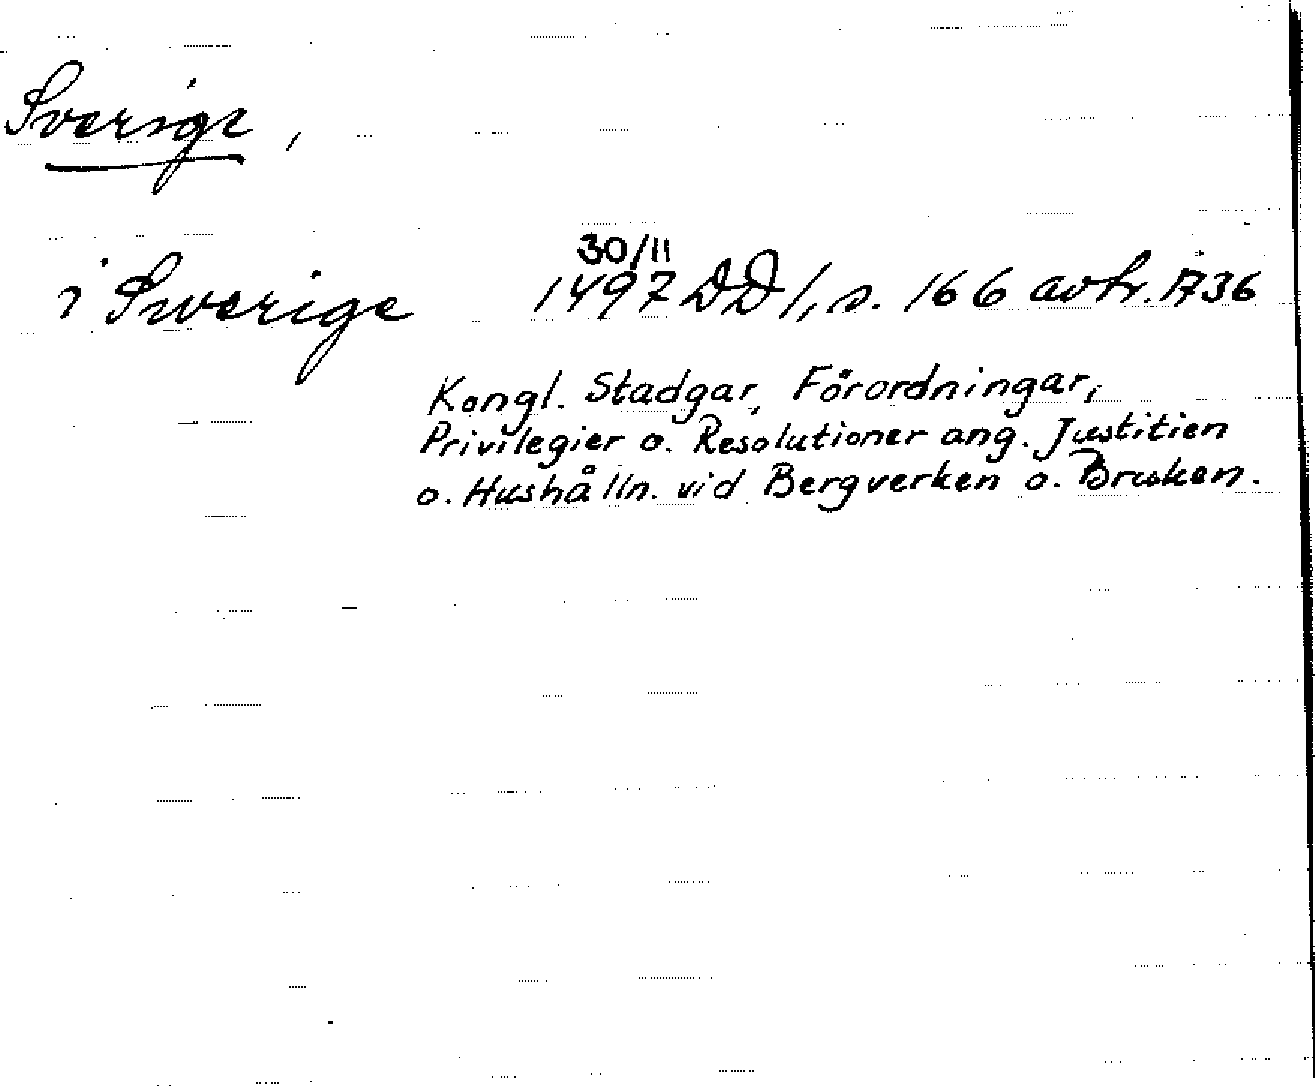 Sverige,
30/11
i Swerige 1497 DD 1, s. 166 avtr. 1736
Kongl. Stadgar, Förordningar,
Privilegier o. Resolutioner ang. Justitien
o. Hushålln. vid Bergverken o. Bruken.